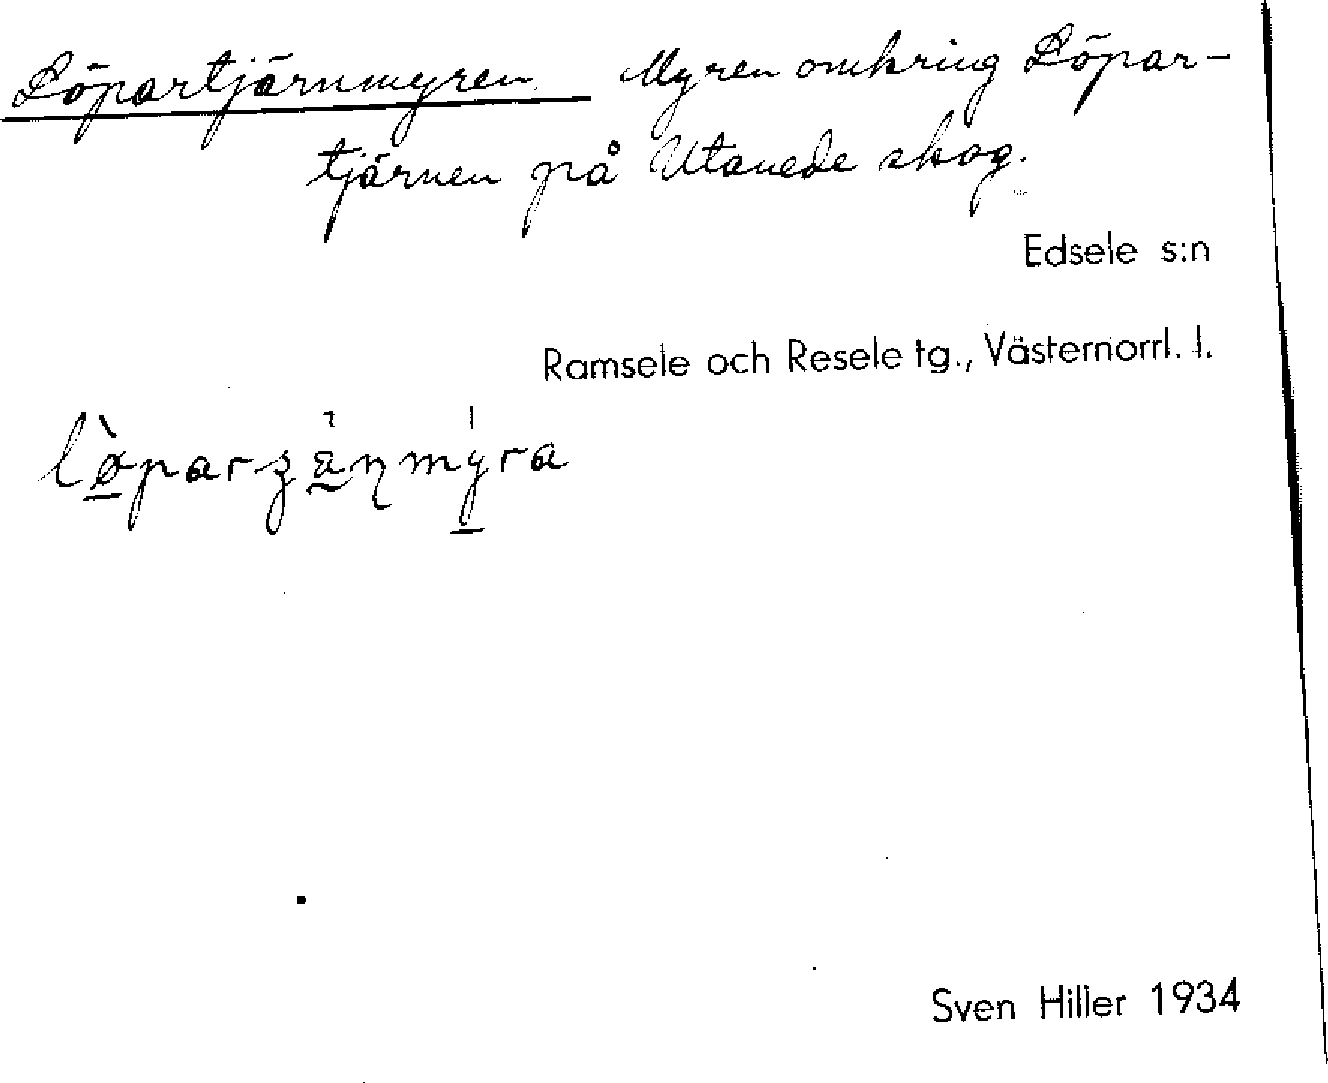 Löpartjärnmyren Myren omkring Löpar-
tjärnen på Utanede skog.
Edsele s:n
Ramsele och Resele tg., Västernorrl. l.
Sven Hiller 1934